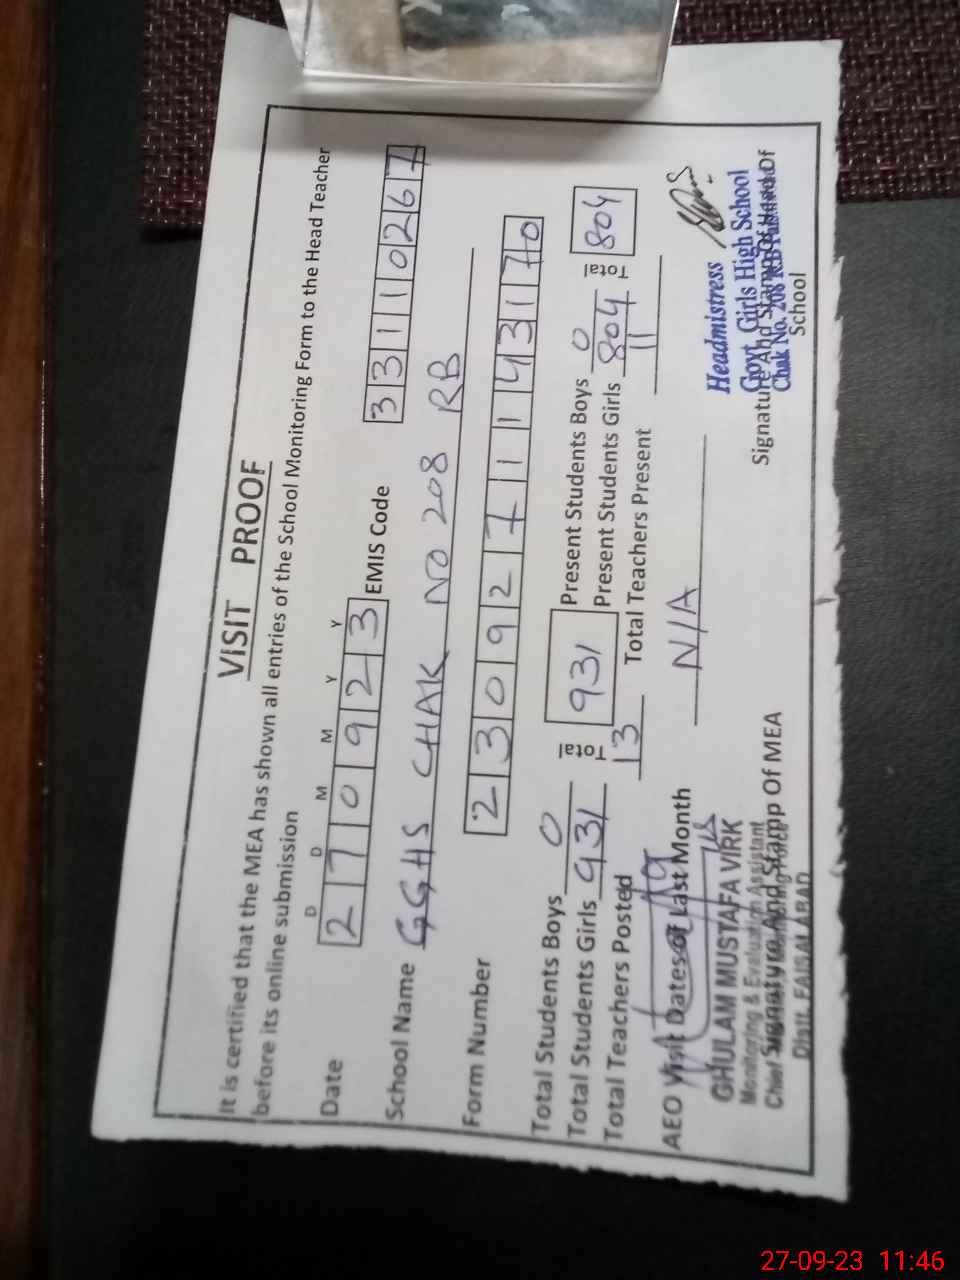 VISIT PROOF
It is certified that the MEA has shown all entries of the School Monitoring Form to the Head Teacher
before its online submission
D D M M Y Y
Date 2 7 0 9 2 3 EMIS Code 3 3 1 1 0 2 6 7
School Name GGHS CHAK NO 208 RB
Form Number 2 3 0 9 2 7 1 1 4 3 1 7 0
Total Students Boys 0 Total 931 Present Students Boys 0 Total 804
Total Students Girls 931 Present Students Girls 804
Total Teachers Posted 13 Total Teachers Present 11
AEO Visit Dates of Last Month N/A
GHULAM MUSTAFA VIRK
Monitoring & Evaluation Assistant
Chief
Signature And Stamp Of MEA
Distt. FAISALABAD
Headmistress
Govt. Girls High School
Chak No. 208 R.B
Signature And Stamp Of Head Of
School
27-09-23 11:46